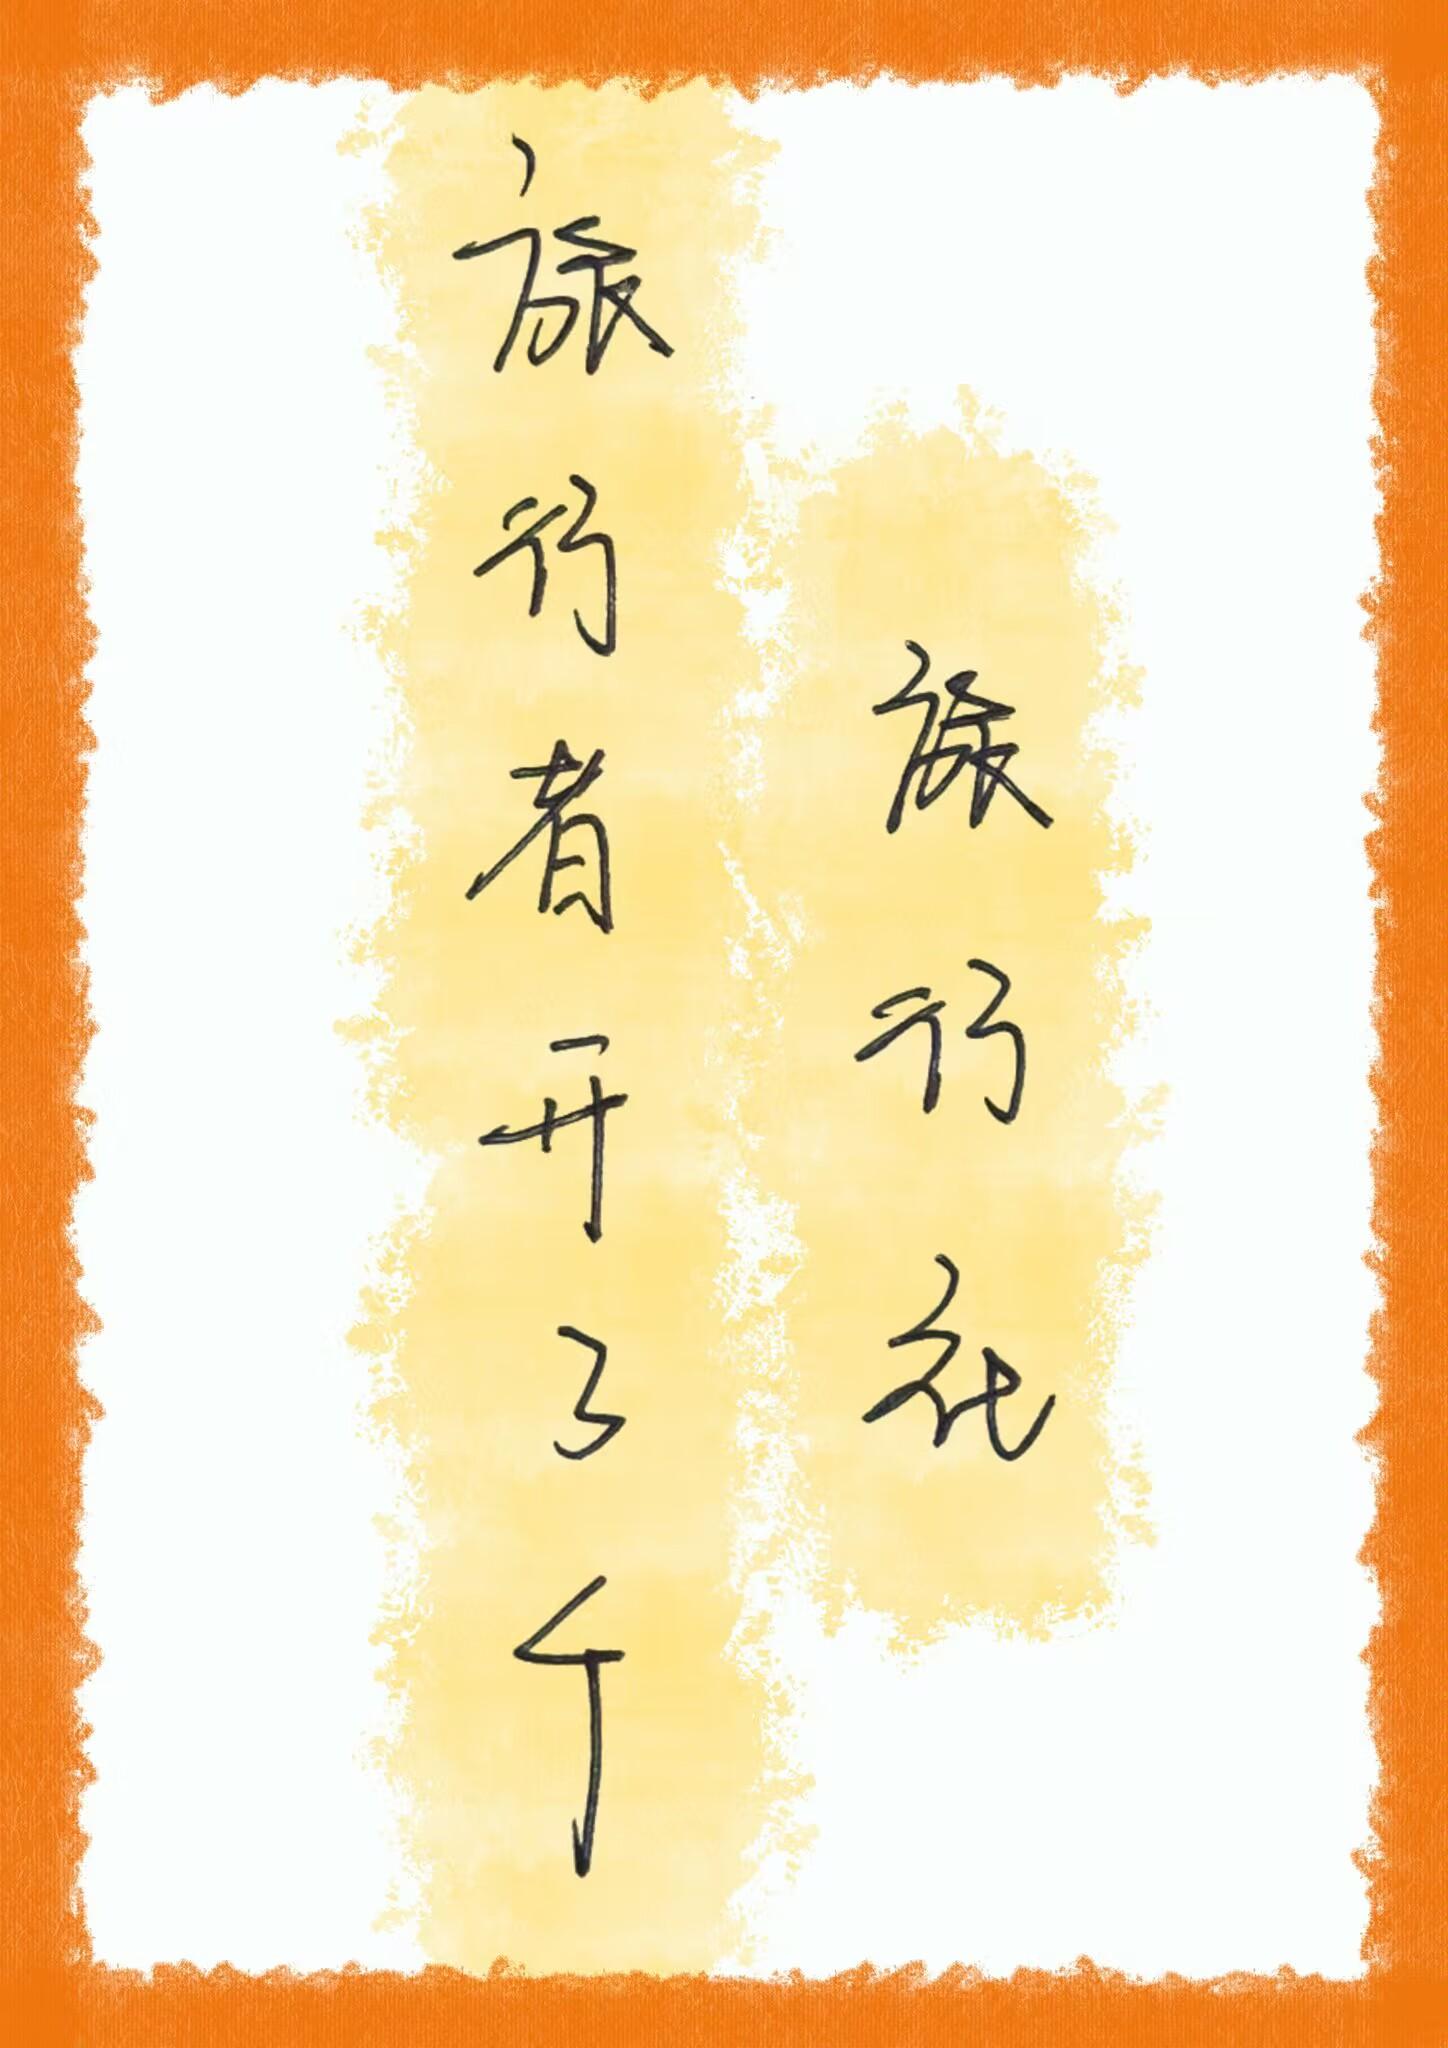 旅行者开了个
旅行社